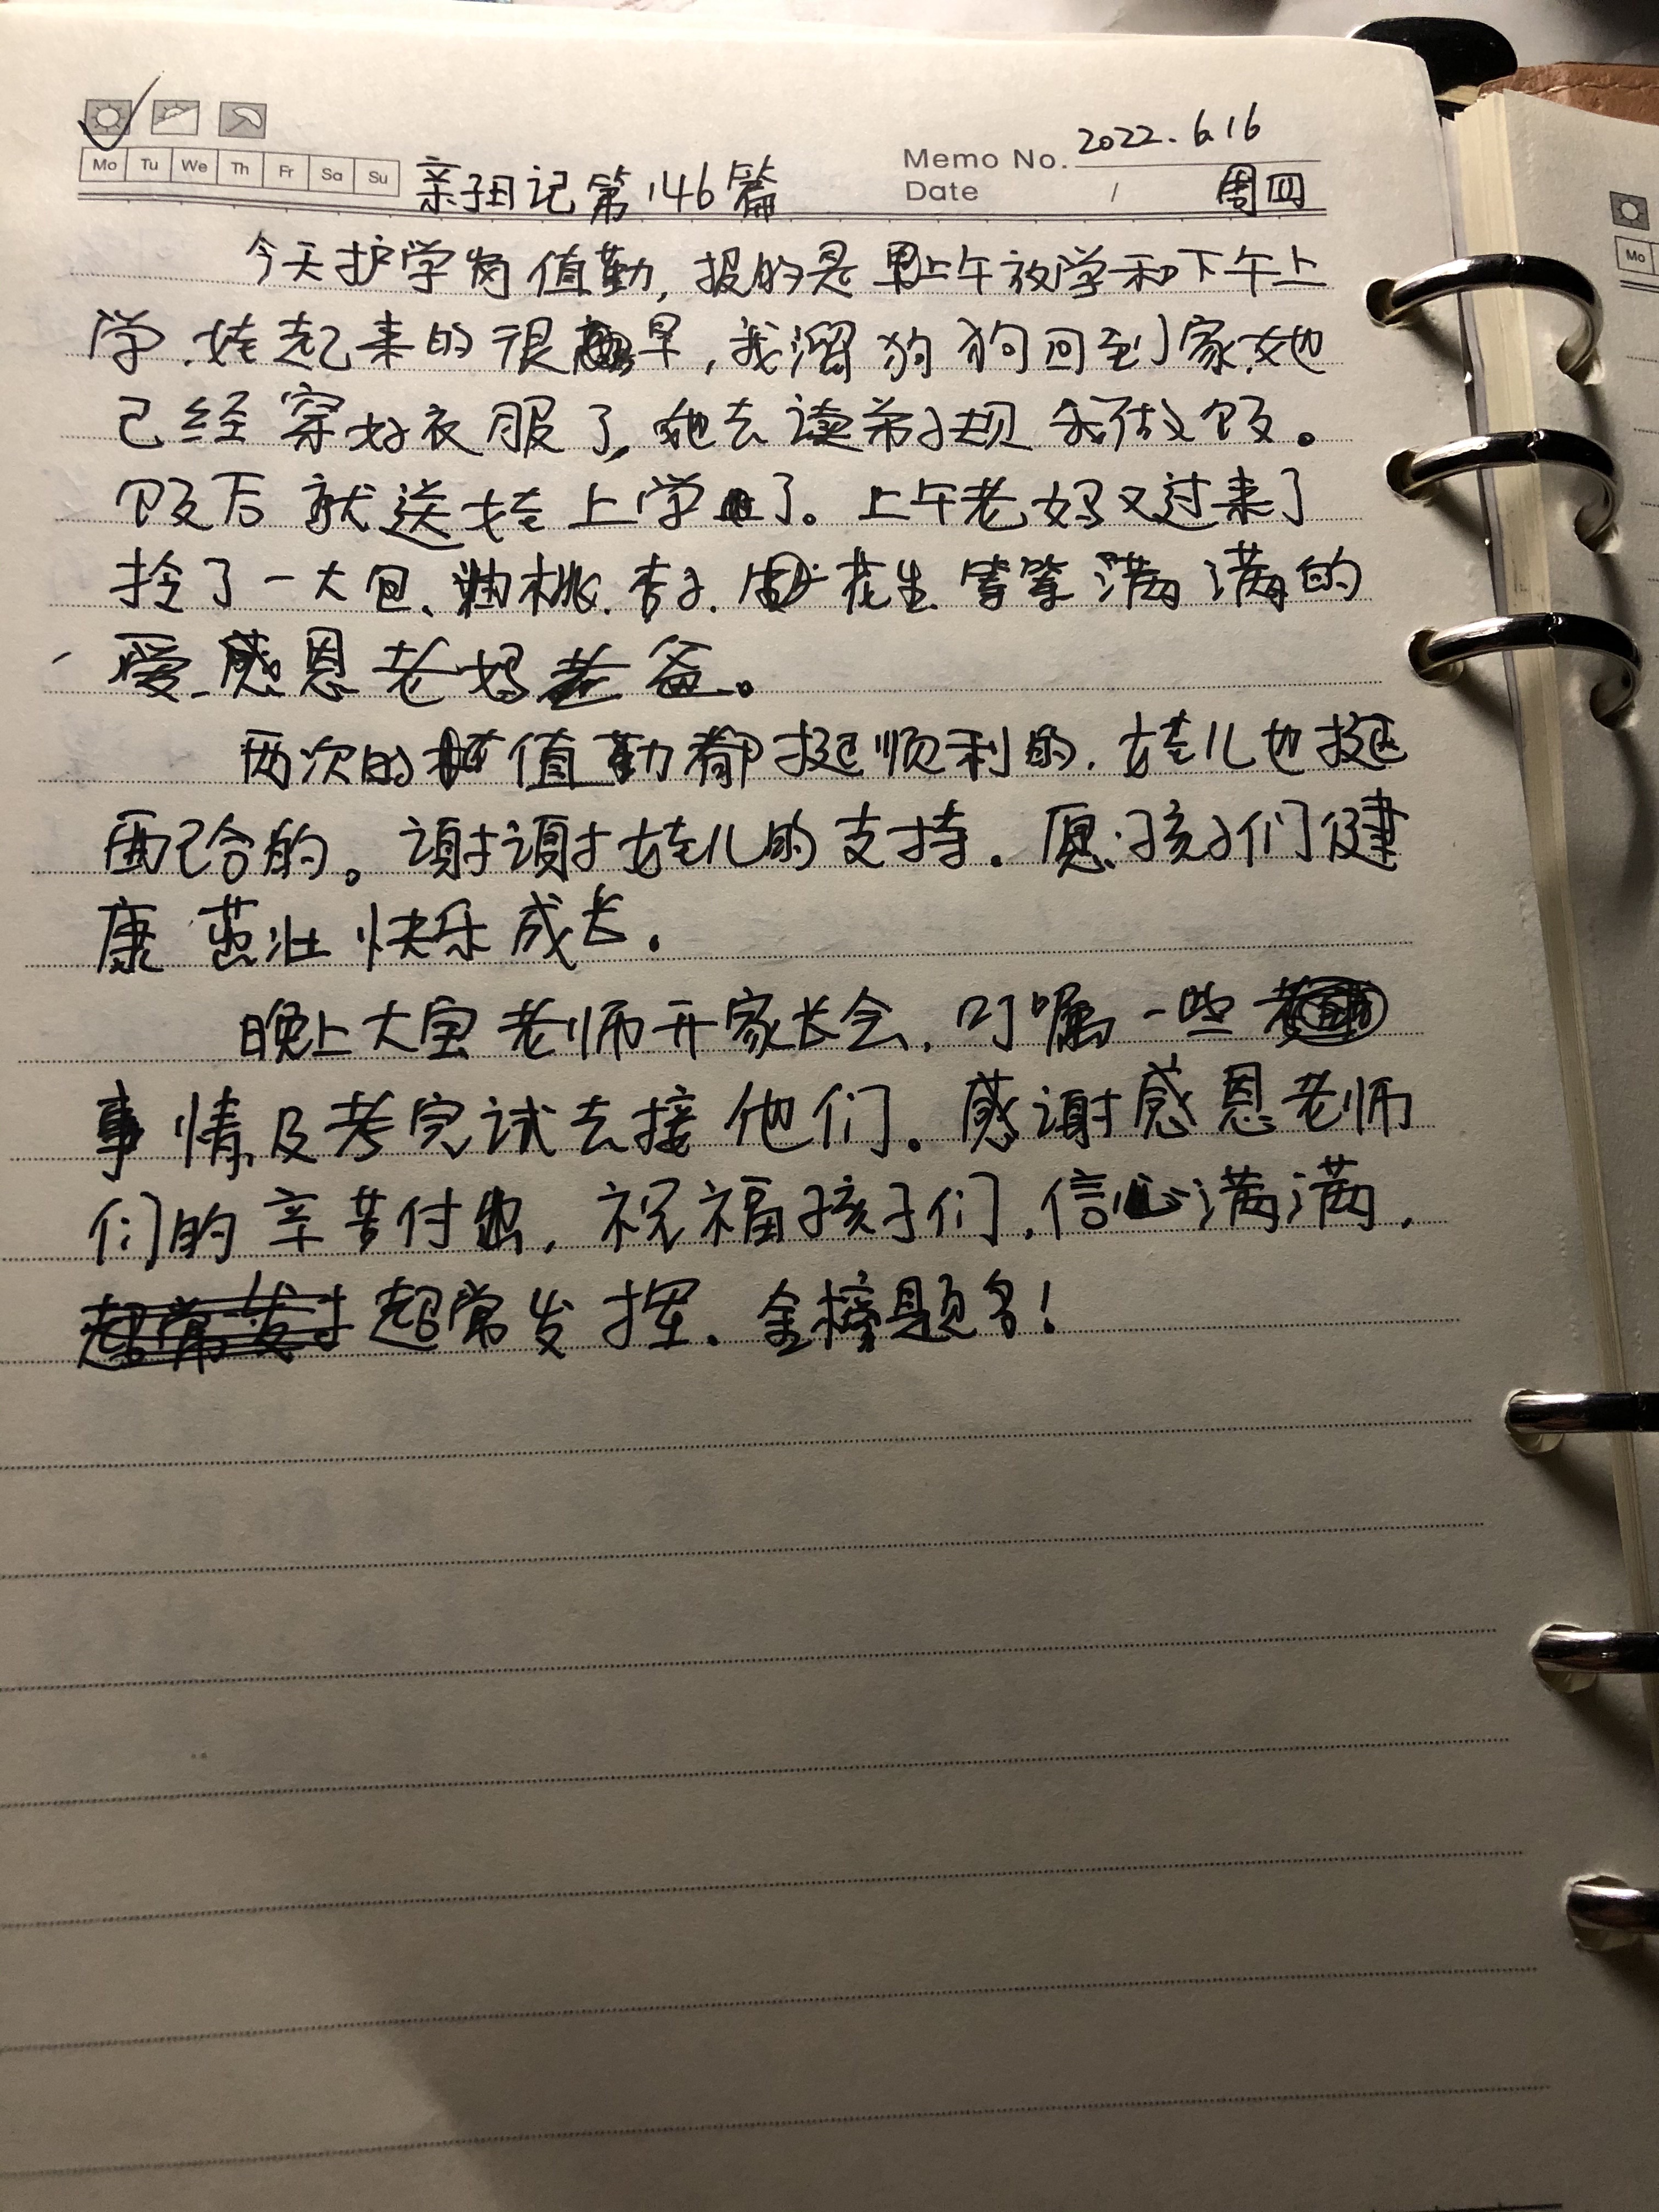 Mo Tu We Th Fr Sa Su
亲子日记第146篇
Memo No. 2022.6.16
Date / 周四
今天护学岗值勤,报的是上午放学和下午上
学.娃起来的很早,我溜狗狗回到家,她
已经穿好衣服了,她去读弟子规 我做饭。
饭后就送娃上学了。上午老妈又过来了
拎了一大包、油桃.杏子.花生.等等满满的
爱.感恩老妈老爸。
两次的值勤都挺顺利的.娃儿也挺
配合的。谢谢娃儿的支持.愿孩子们健
康茁壮快乐成长.
晚上大宝老师开家长会,叮嘱一些
事情及考完试去接他们。感谢感恩老师
们的辛苦付出,祝福孩子们,信心满满,
超常发挥.金榜题名!
Mo